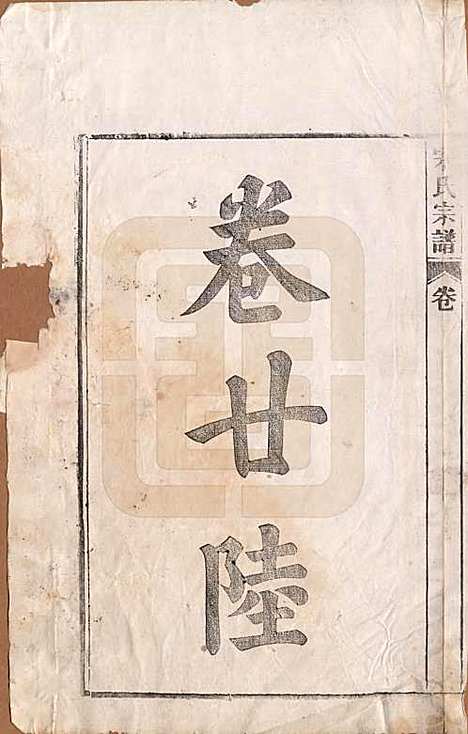 氏宗譜
卷
卷廿陸